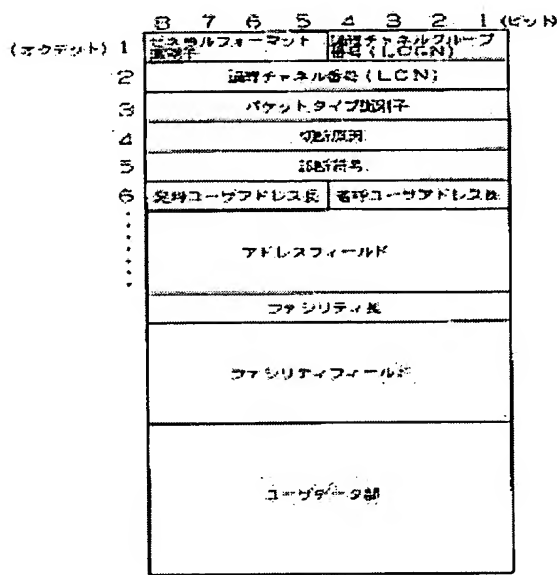 8 7 6 5 4 3 2 1 (ビット)
(オクテット) 1 ゼネラルフォーマット 識別子 論理チャネルグループ 番号 (LCGN)
2 論理チャネル番号 (LCN)
3 パケットタイプ識別子
4 切断原因
5 診断符号
6 発呼ユーザアドレス長 着呼ユーザアドレス長
アドレスフィールド
ファシリティ長
ファシリティフィールド
ユーザデータ部